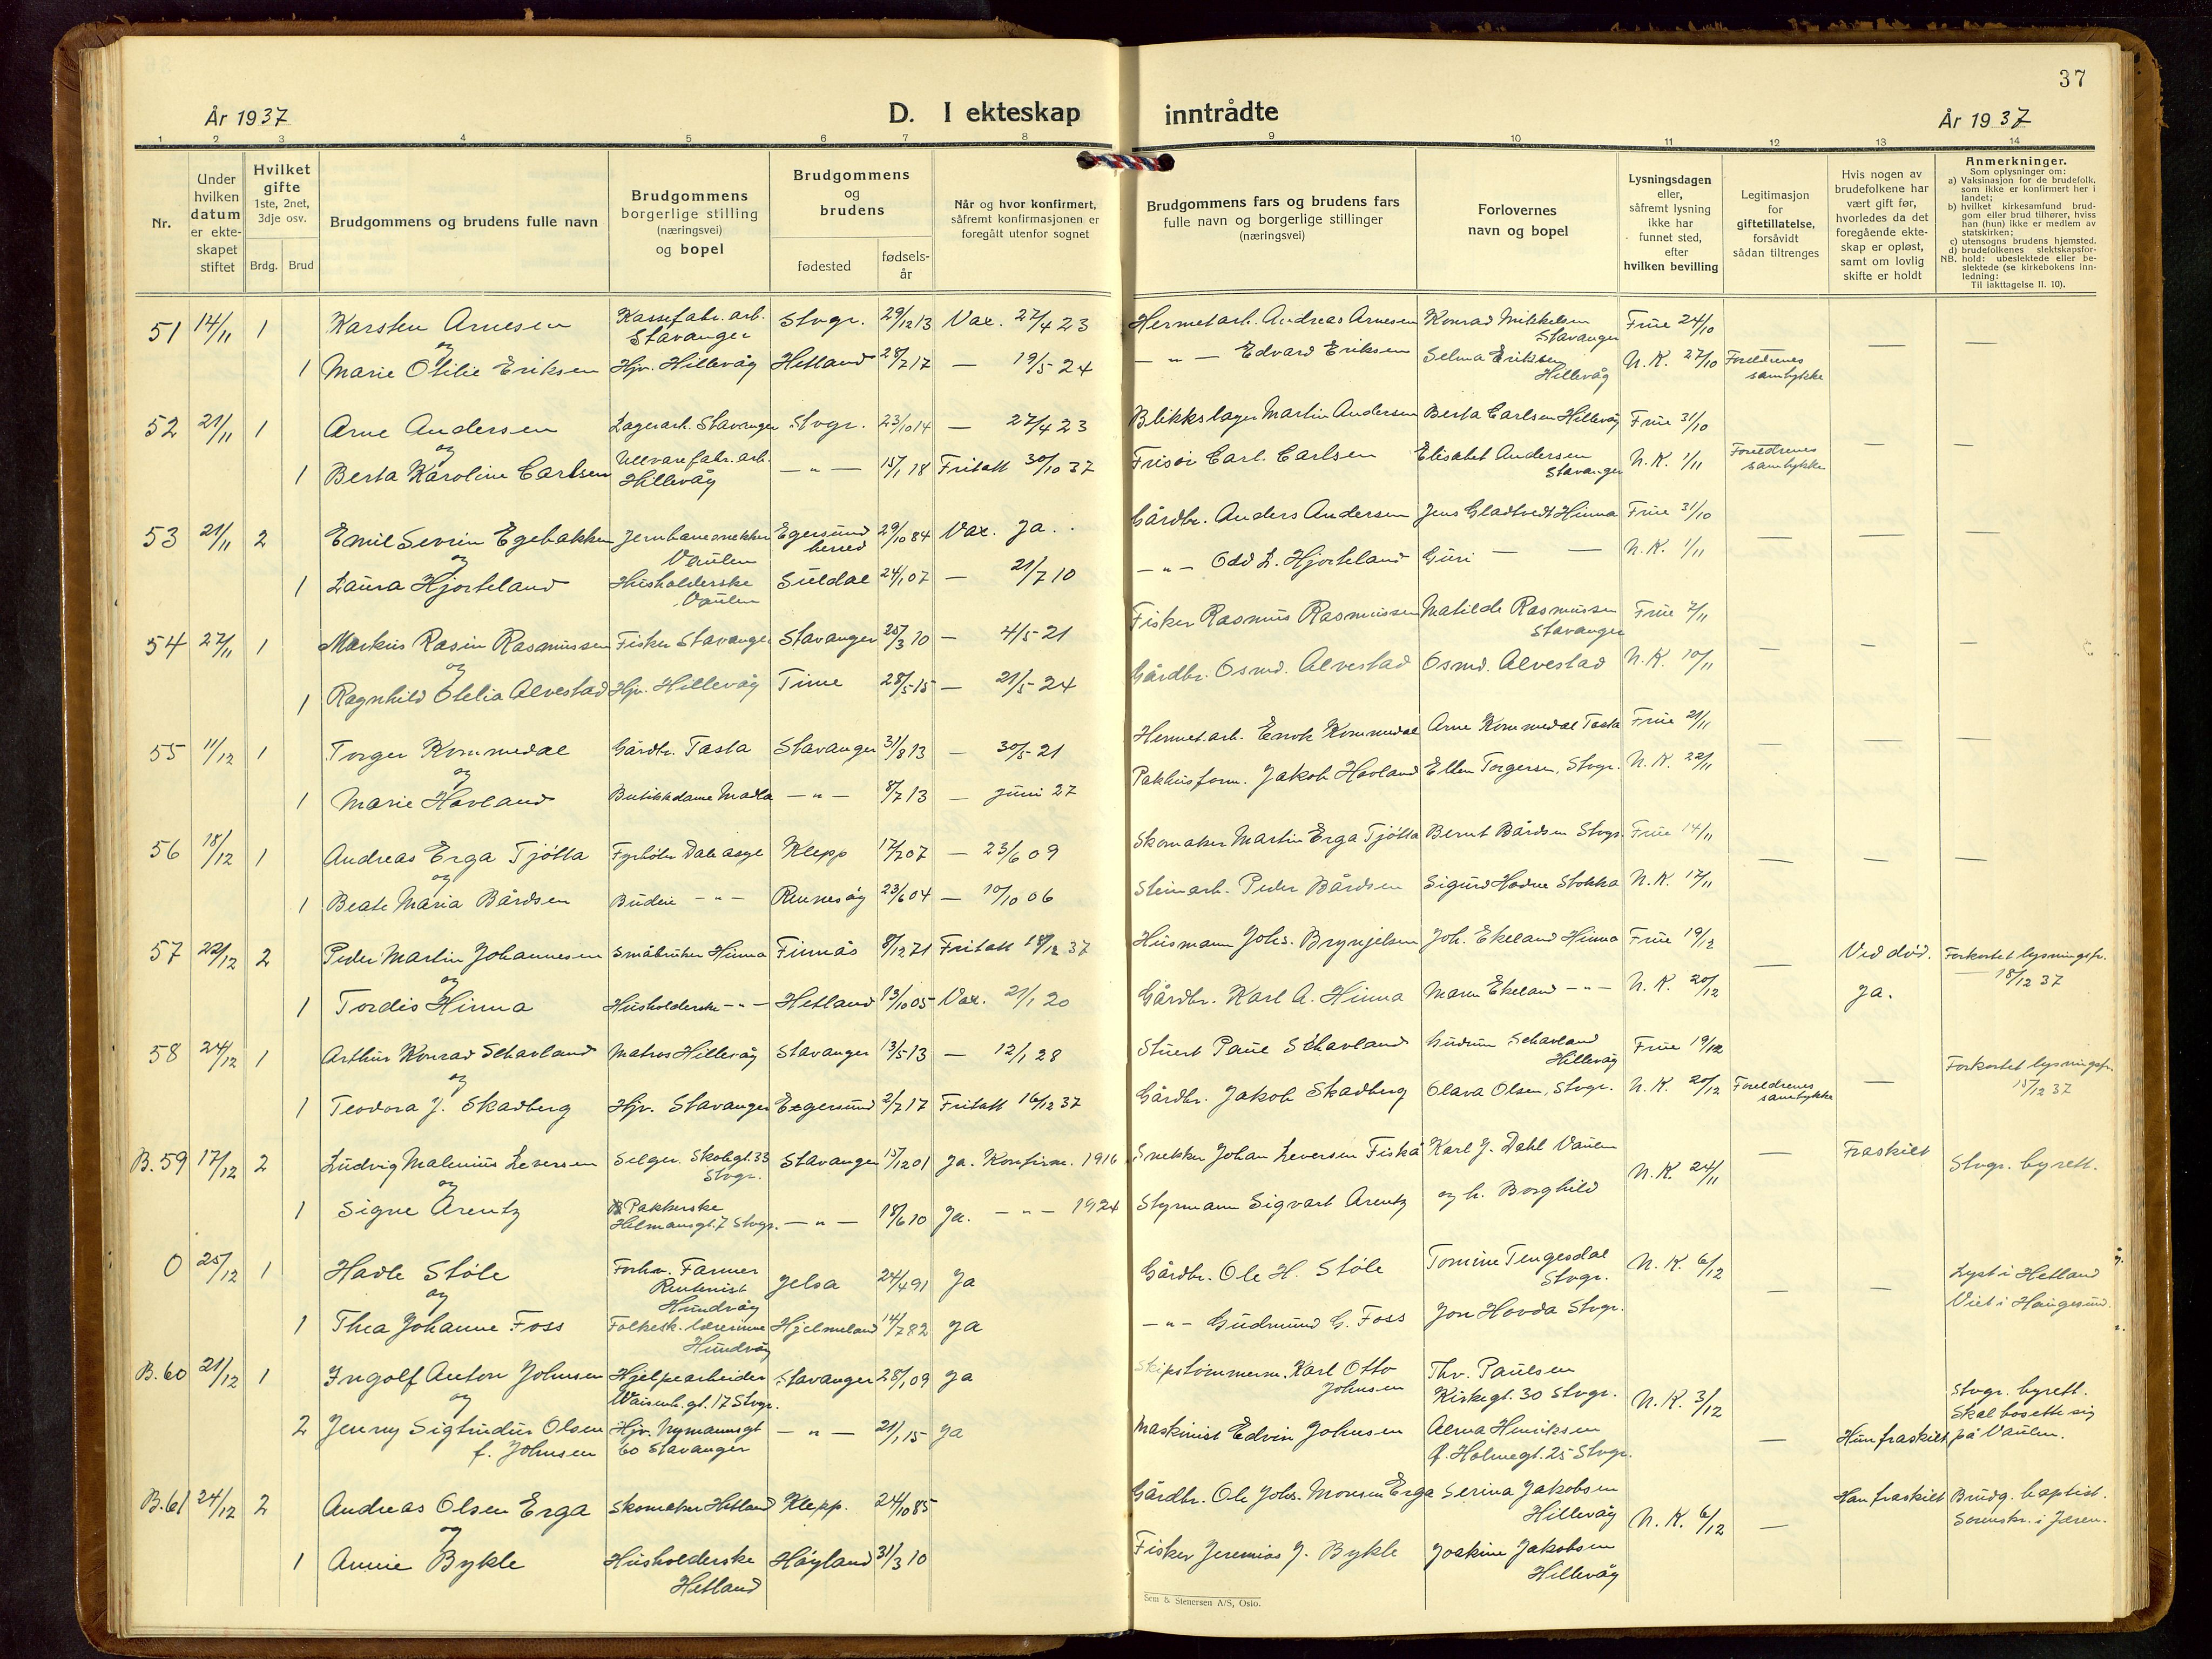 37
År 1937
D. I ekteskap inntrådte
År 1937
1 2 3 4 5 6 7 8 9 10 11 12 13 14
Nr.
Under hvilken datum er ekteskapet stiftet
Hvilket gifte 1ste, 2net, 3dje osv.
Brdg. Brud
Brudgommens og brudens fulle navn
Brudgommens borgerlige stilling (næringsvei) og bopel
Brudgommens og brudens
fødested
fødselsår
Når og hvor konfirmert, såfremt konfirmasjonen er foregått utenfor sognet
Brudgommens fars og brudens fars fulle navn og borgerlige stillinger (næringsvei)
Forlovernes navn og bopel
Lysningsdagen eller, såfremt lysning ikke har funnet sted, efter hvilken bevilling
Legitimasjon for giftetillatelse, forsåvidt sådan tiltrenges
Hvis nogen av brudefolkene har vært gift før, hvorledes da det foregående ekteskap er opløst, samt om lovlig skifte er holdt
Anmerkninger.
Som oplysninger om:
a) Vaksinasjon for de brudefolk. som ikke er konfirmert her i landet;
b) hvilket kirkesamfund brudgom eller brud tilhører, hviss han (hun) ikke er medlem av statskirken;
c) utensogns brudens hjemsted.
d) brudefolkenes slektskapsforhold: ubeslektede eller beslektede (se kirkebokens innledning:
NB.
Til iakttagelse II. 10).
51 14/11 1 Karsten Arnesen Kassefabr. arb. Stavanger Stvgr. 29/12 13 Vax. 27/4 23 Hermetarb. Andreas Arnesen Konrad Mikkelsen Stavanger Frue 24/10 — —
og
1 Marie Otilie Eriksen Hjv. Hillevåg Hetland 28/7 17 — 19/5 24 — " — Edvard Eriksen Selma Eriksen Hillevåg N. K. 27/10 Foreldrenes samtykke
52 21/11 1 Arne Andersen Lagerarb. Stavanger Stvgr. 23/10 14 — 27/4 23 Blikkslager Martin Andersen Berta Carlsen Hillevåg Frue 31/10 — —
og
1 Berta Karoline Carlsen Ullvarefabr. arb. Hillevåg — " — 15/1 18 Fritatt 30/10 37 Frisør Carl. Carlsen Elisabet Andersen Stavanger N. K. 1/11 Foreldrenes samtykke
53 21/11 2 Emil Sevrin Egebakken Jernbanesnekker Vaulen Egersund herred 29/10 84 Vax. Ja. Gårdbr. Anders Andersen Jens Gladtvedt Hinna Frue 31/10 — — —
og
1 Laura Hjorteland Husholderske Vaulen Suldal 24/1 07 — 21/7 10 — " — Odd L. Hjorteland Guri — — N. K. 1/11
54 27/11 1 Markus Rasin Rasmussen Fisker Stavanger Stavanger 25/3 10 — 4/5 21 Fisker Rasmus Rasmussen Matilde Rasmussen Stavanger Frue 7/11 — — —
og
1 Ragnhild Otelia Alvestad Hjv. Hillevåg Time 28/5 15 — 21/5 24 Gårdbr. Osmd. Alvestad Osmd. Alvestad N. K. 10/11
55 11/12 1 Torger Kommedal Gårdbr. Tasta Stavanger 31/8 13 — 30/5 21 Hermet.arb. Enok Kommedal Arne Kommedal Tasta Frue 21/11 — — —
og
1 Marie Havland Butikkdame Madla — " — 8/7 13 — Juni 27 Pakhusform. Jakob Havland Ellen Torgersen, Stvgr. N. K. 22/11
56 18/12 1 Andreas Erga Tjøtta Fyrbøter Dale asyl Klepp 17/2 07 — 23/6 09 Skomaker Martin Erga Tjøtta Bernt Bårdsen Stvgr. Frue 14/11 — — —
og
1 Beate Maria Bårdsen Budeie — " — Rennesøy 23/6 04 — 10/10 06 Steinarb. Peder Bårdsen Sigurd Hodne Stokka N. K. 17/11
57 22/12 2 Peder Martin Johannesen Småbruker Hinna Finnås 8/12 71 Fritatt 18/12 37 Husmann Johs. Brynjelsen Joh. Ekeland Hinna Frue 19/12 — Ved død. Forkortet lysningsfr. 18/12 37
og
1 Tordis Hinna Husholderske — " — Hetland 13/10 05 Vax. 21/1 20 Gårdbr. Karl A. Hinna Maren Ekeland — " — N. K. 20/12 Ja.
58 24/12 1 Arthur Konrad Schavland Matros Hillevåg Stavanger 13/5 13 — 12/1 28 Stuert Paul Schavland Gudrun Schavland Hillevåg Frue 19/12 — Forkortet lysningsfr. 15/12 37
og
1 Teodora J. Skadberg Hjv. Stavanger Egersund 2/7 17 Fritatt 16/12 37 Gårdbr. Jakob Skadberg Olava Olsen, Stvgr. N. K. 20/12 Foreldrenes samtykke
B. 59 17/12 2 Ludvig Malenius Leversen Selger. Skolegt. 33 Stvgr. Stavanger 15/12 01 Ja. Konfirm. 1916 Snekker Johan Leversen Fiskå Karl J. Dahl Vaulen N. K. 24/11 — Fraskilt Stvgr. byrett.
og
1 Signe Arentz Pakkerske Helmansgt. 7 Stvgr. — " — 18/6 10 Ja. — " — 1924 Styrmann Sigvart Arentz og h. Borghild
0 25/12 1 Hadle Støle Forhv. Farmer Rentenist Hundvåg Jelsa 24/4 91 Ja Gårdbr. Ole H. Støle Tomine Tengesdal Stvgr. N. K. 6/12 — — Lyst i Hetland Viet i Haugesund.
og
1 Thea Johanne Foss Folkesk. lærerinne Hundvåg Hjelmeland 14/7 82 Ja — " — Gudmund G. Foss Jon Hovda Stvgr.
B. 60 21/12 1 Ingolf Anton Johnsen Hjelpearbeider Waisenh. gt. 17 Stvgr. Stavanger 28/1 09 Ja Skipstømmerm. Karl Otto Johnsen Thv. Paulsen Kirkegt. 30 Stvgr. N. K. 3/12 — Stvgr. byrett. Skal bosette sig på Vaulen.
og
2 Jenny Sigtrudur Olsen f. Johnsen Hjv. Nymannsgt 60 Stavanger — " — 21/1 15 Ja Maskinist Edvin Johnsen Alma Henriksen Ø. Holmegt. 25 Stvgr. Hun fraskilt
B. 61 24/12 2 Andreas Olsen Erga Skomaker Hetland Klepp. 24/10 85 Gårdbr. Ole Johs. Monsen Erga Serina Jakobsen Hillevåg N. K. 6/12 — Han fraskilt Brudg. baptist. Sorenskr. i Jæren.
og
1 Annie Bykle Husholderske Hetland Høyland 31/3 10 Fisker Jeremias J. Bykle Joakine Jakobsen Hillevåg
Sem & Stenersen A/S, Oslo.